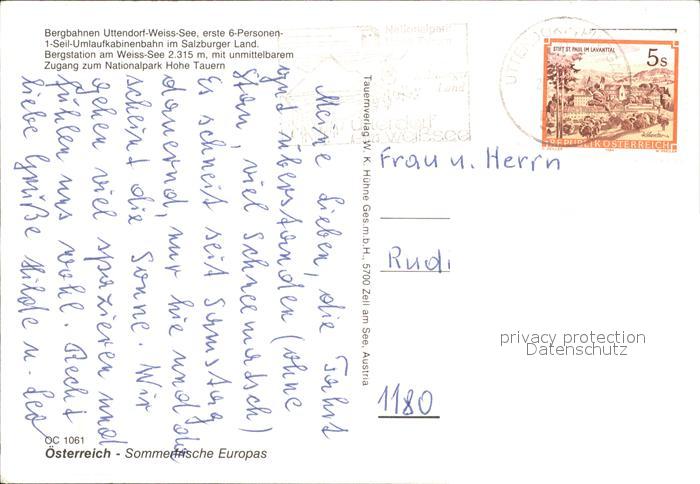 Bergbahnen Uttendorf-Weiss-See, erste 6-Personen-
1-Seil-Umlaufkabinenbahn im Salzburger Land.
Bergstation am Weiss-See 2.315 m, mit unmittelbarem
Zugang zum Nationalpark Hohe Tauern
Meine Lieben, die Fahrt
gut überstanden (ohne
Stau, viel Schneematsch)
Es schneit seit Samstag
dauernd, nur hie und da
scheint die Sonne. Wir
gehen viel spazieren und
fühlen uns wohl. Recht
liebe Grüße Hilde u. Leo
OC 1061
Österreich - Sommerfrische Europas
Tauernverlag W. K. Hühne Ges.m.b.H., 5700 Zell am See, Austria
Nationalpark
Land
UTTENDORF
STIFT ST. PAUL IM LAVANTTAL
5s
REPUBLIK ÖSTERREICH
Frau u. Herrn
Rudi
1180
privacy protection
Datenschutz